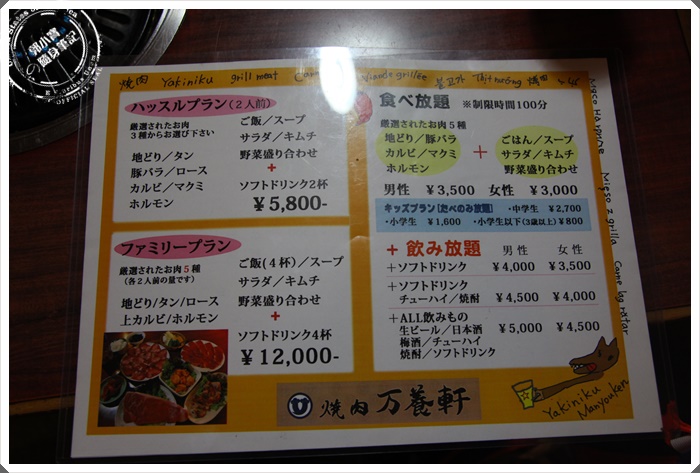 郭小寶
隨身筆記
焼肉 Yakiniku grill meat Carne Viande grillée 불고기 Thịt nướng 燒肉
ハッスルプラン(2人前)
厳選されたお肉
3種からお選び下さい
地どり／タン
豚バラ／ロース
カルビ／マクミ
ホルモン
ご飯／スープ
サラダ／キムチ
野菜盛り合わせ
+
ソフトドリンク2杯
￥5,800-
ファミリープラン
厳選されたお肉5種
(各2人前の量です)
地どり/タン/ロース
上カルビ/ホルモン
ご飯(4杯)／スープ
サラダ／キムチ
野菜盛り合わせ
+
ソフトドリンク4杯
￥12,000-
食べ放題 ※制限時間100分
厳選されたお肉5種
地どり／豚バラ
カルビ／マクミ
ホルモン
+
ごはん／スープ
サラダ／キムチ
野菜盛り合わせ
男性 ￥3,500 女性 ￥3,000
キッズプラン【たべのみ放題】 ・中学生 ￥2,700
・小学生 ￥1,600 ・小学生以下(3歳以上)￥800
+飲み放題 男性 女性
+ソフトドリンク ￥4,000 ￥3,500
+ソフトドリンク
チューハイ／焼酎 ￥4,500 ￥4,000
+ALL飲みもの
生ビール／日本酒 ￥5,000 ￥4,500
梅酒／チューハイ
焼酎／ソフトドリンク
焼肉 万養軒
Yakiniku
Manyouken
Mięso z grilla